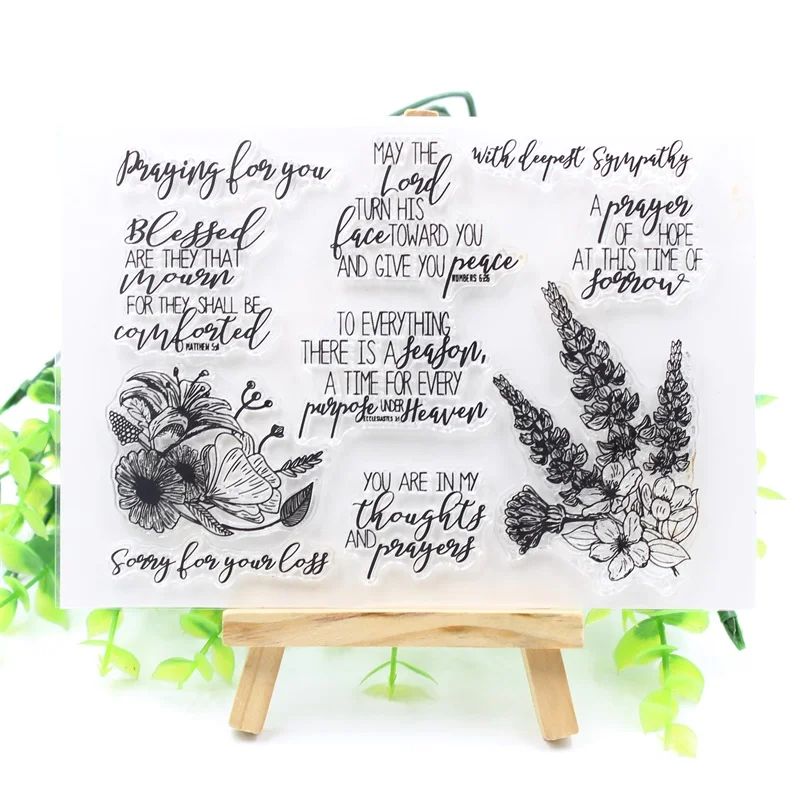 Praying for you
MAY THE
Lord
TURN HIS
face TOWARD YOU
AND GIVE YOU peace
NUMBERS 6:26
With deepest Sympathy
Blessed
ARE THEY THAT
mourn
FOR THEY SHALL BE
comforted
MATTHEW 5:4
A prayer
OF HOPE
AT THIS TIME OF
Sorrow
TO EVERYTHING
THERE IS A Season,
A TIME FOR EVERY
purpose UNDER Heaven
ECCLESIASTES 3:1
YOU ARE IN MY
thoughts
AND prayers
Sorry for your loss